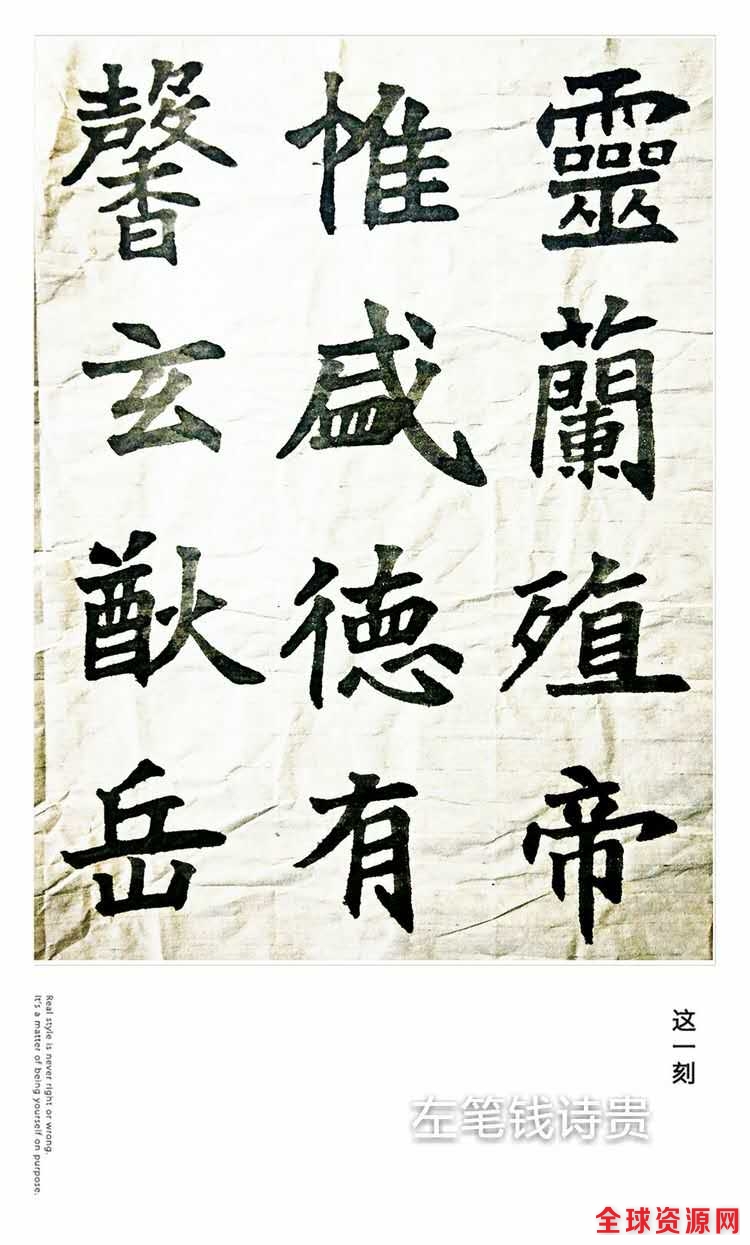 靈蘭殖帝
帷盛德有
馨玄猷岳
这一刻
左笔钱诗贵
Real style is never right or wrong.
It's a matter of being yourself on purpose.
全球资源网